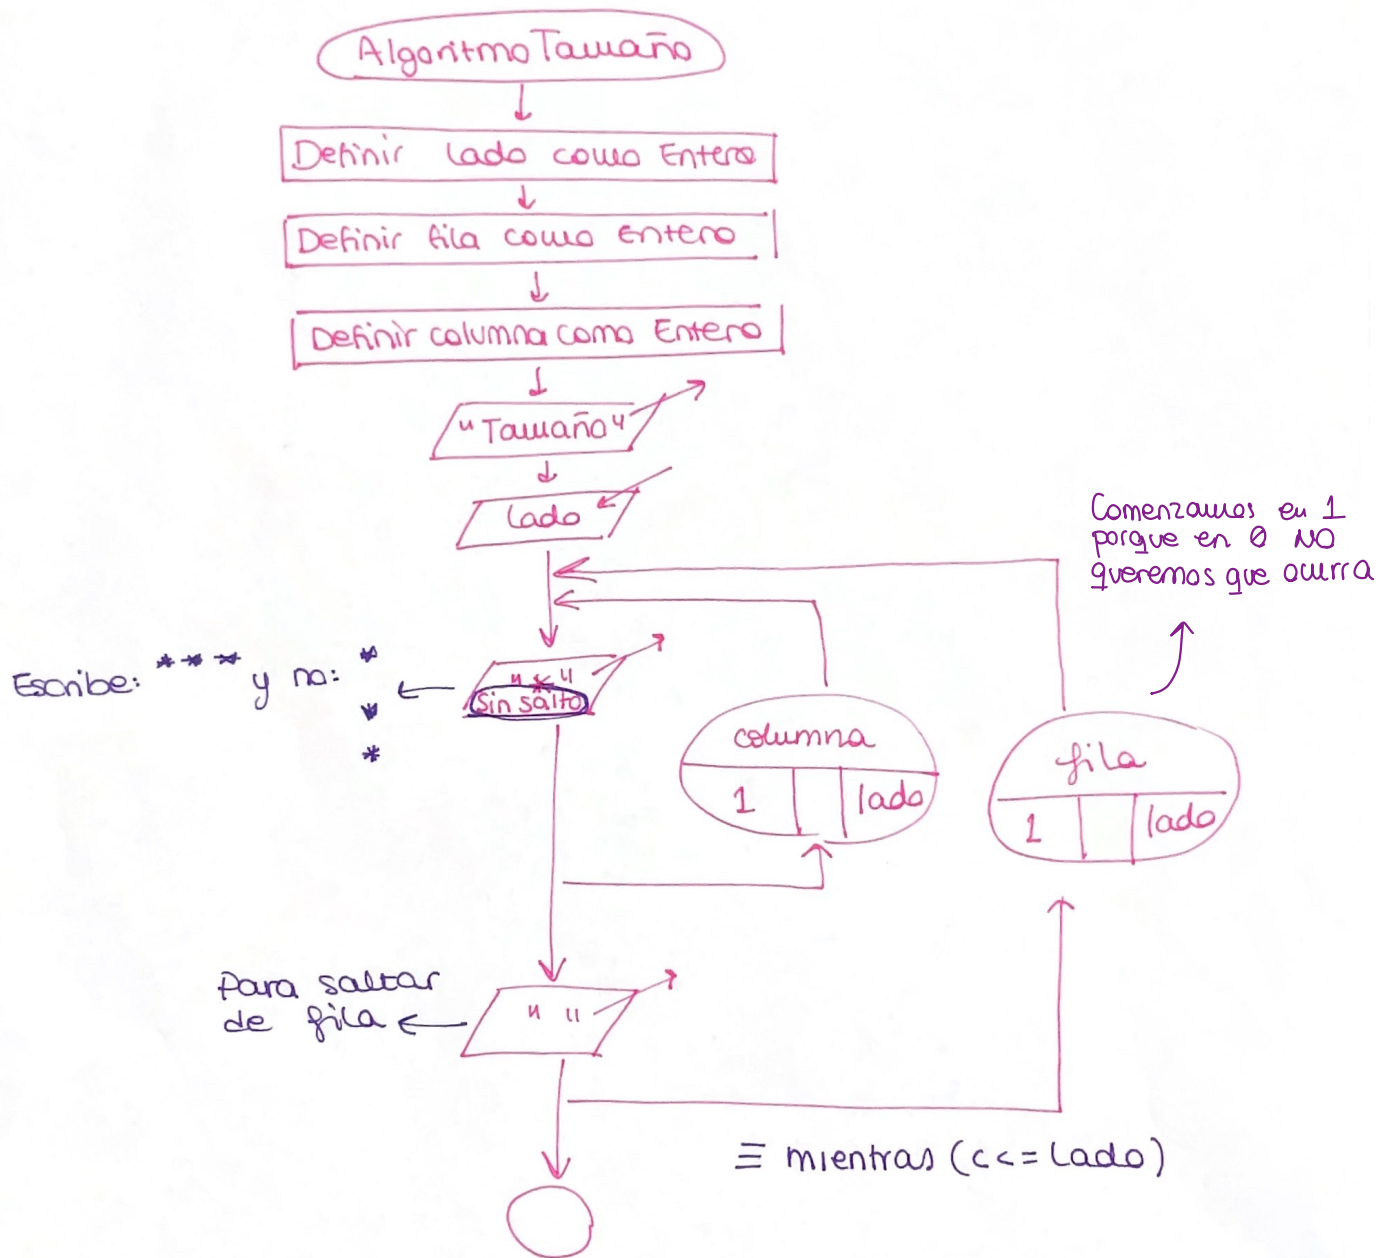 Algoritmo Tamaño
Definir lado como Entero
Definir fila como Entero
Definir columna como Entero
"Tamaño"
lado
Comenzamos en 1
porque en 0 NO
queremos que ocurra
Escribe: * * * y no: *
*
*
"*"
Sin salto
columna
1 lado
fila
1 lado
Para saltar
de fila
" "
≡ mientras (c<=lado)